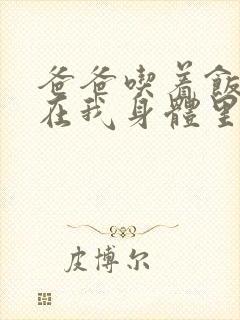 爸爸喫着飯
在我身體里
皮博尔